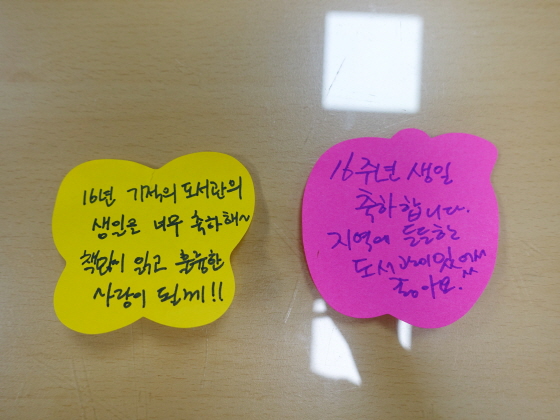 16년 기적의 도서관의
생일은 너무 축하해~
책많이 읽고 훌륭한
사람이 될께!!
16주년 생일
축하합니다.
지역에 든든한
도서관이있어서
좋아요.